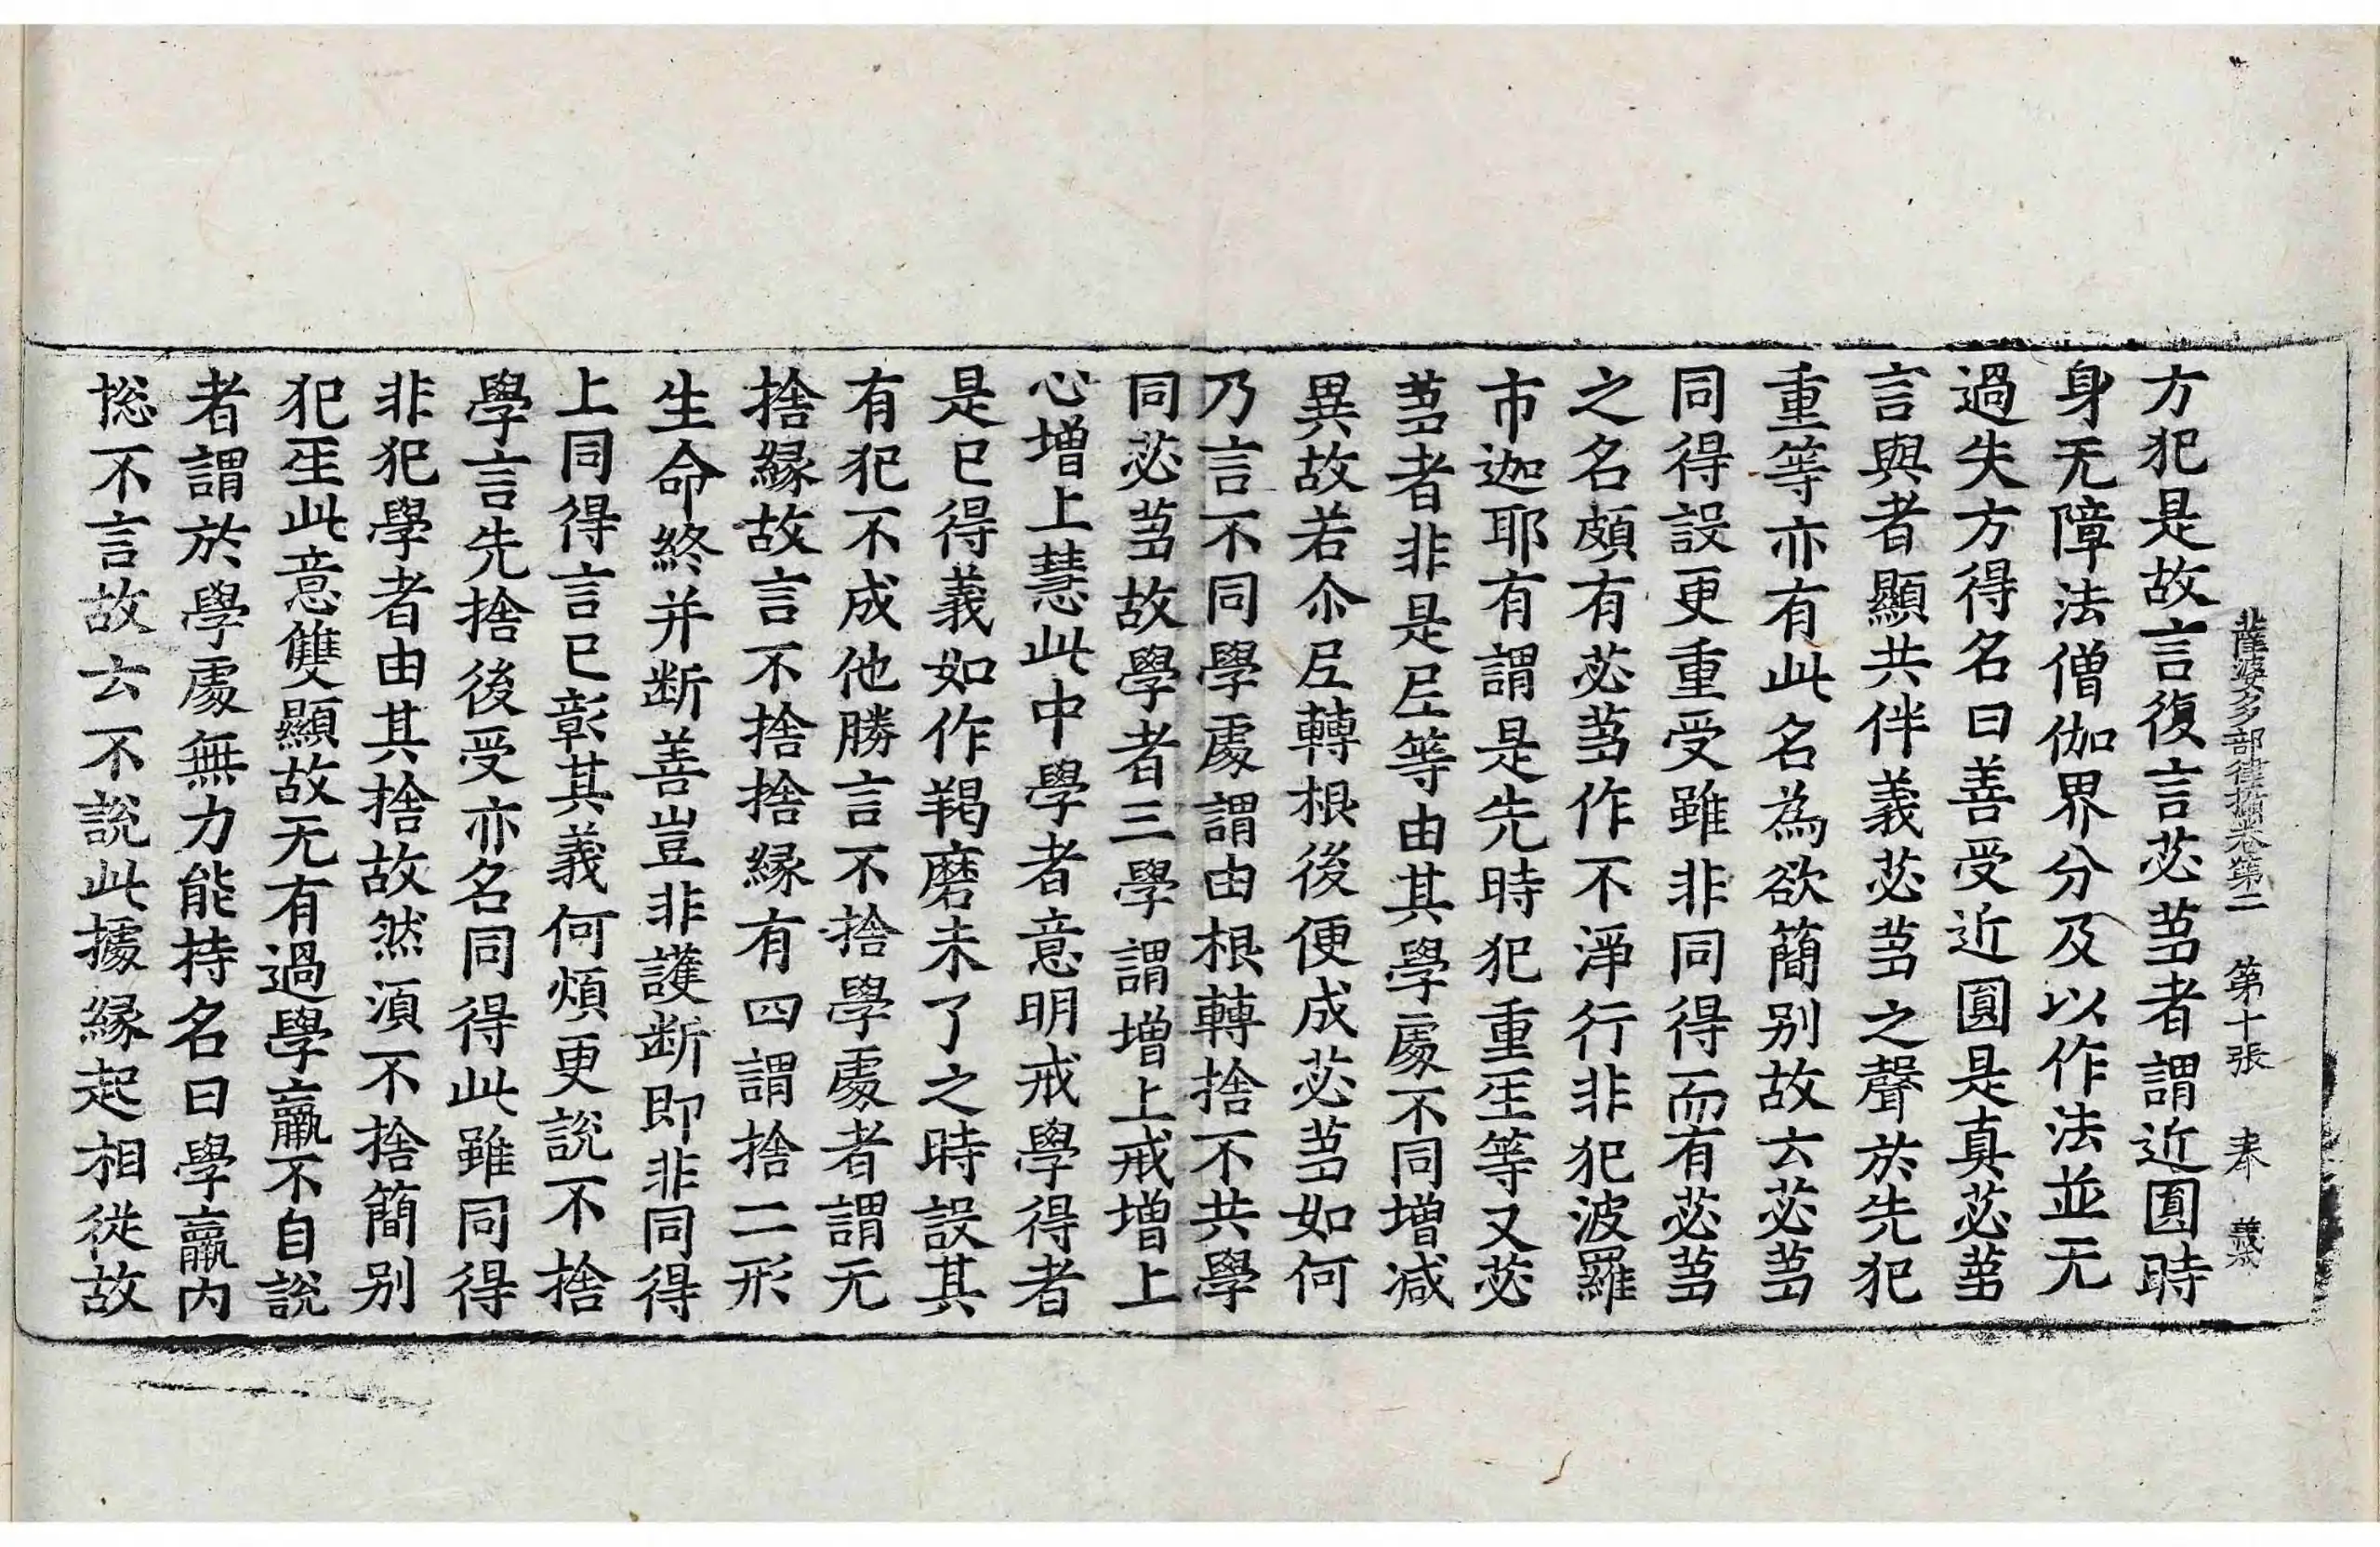 薩婆多部律攝卷第二 第十張 夲 義
方犯是故言復言苾蒭者謂近圓時
身无障法僧伽界分及以作法並无
過失方得名曰善受近圓是真苾蒭
言與者顯共伴義苾蒭之聲於先犯
重等亦有此名為欲簡別故云苾蒭
同得設更重受雖非同得而有苾蒭
之名頗有苾蒭作不淨行非犯波羅
市迦耶有謂是先時犯重𤯔等又苾
蒭者非是𡰱等由其學處不同增減
異故若尒𡰱轉根後便成苾蒭如何
乃言不同學處謂由根轉捨不共學
同苾蒭故學者三學謂增上戒增上
心增上慧此中學者意明戒學得者
是已得義如作羯磨未了之時設其
有犯不成他勝言不捨學處者謂无
捨緣故言不捨捨緣有四謂捨二形
生命終并断善豈非護断即非同得
上同得言已彰其義何煩更說不捨
學言先捨後受亦名同得此雖同得
非犯學者由其捨故然湏不捨簡別
犯𤯔此意雙顯故无有過學羸不自說
者謂於學處無力能持名曰學羸內
揔不言故云不說此據緣起相從故